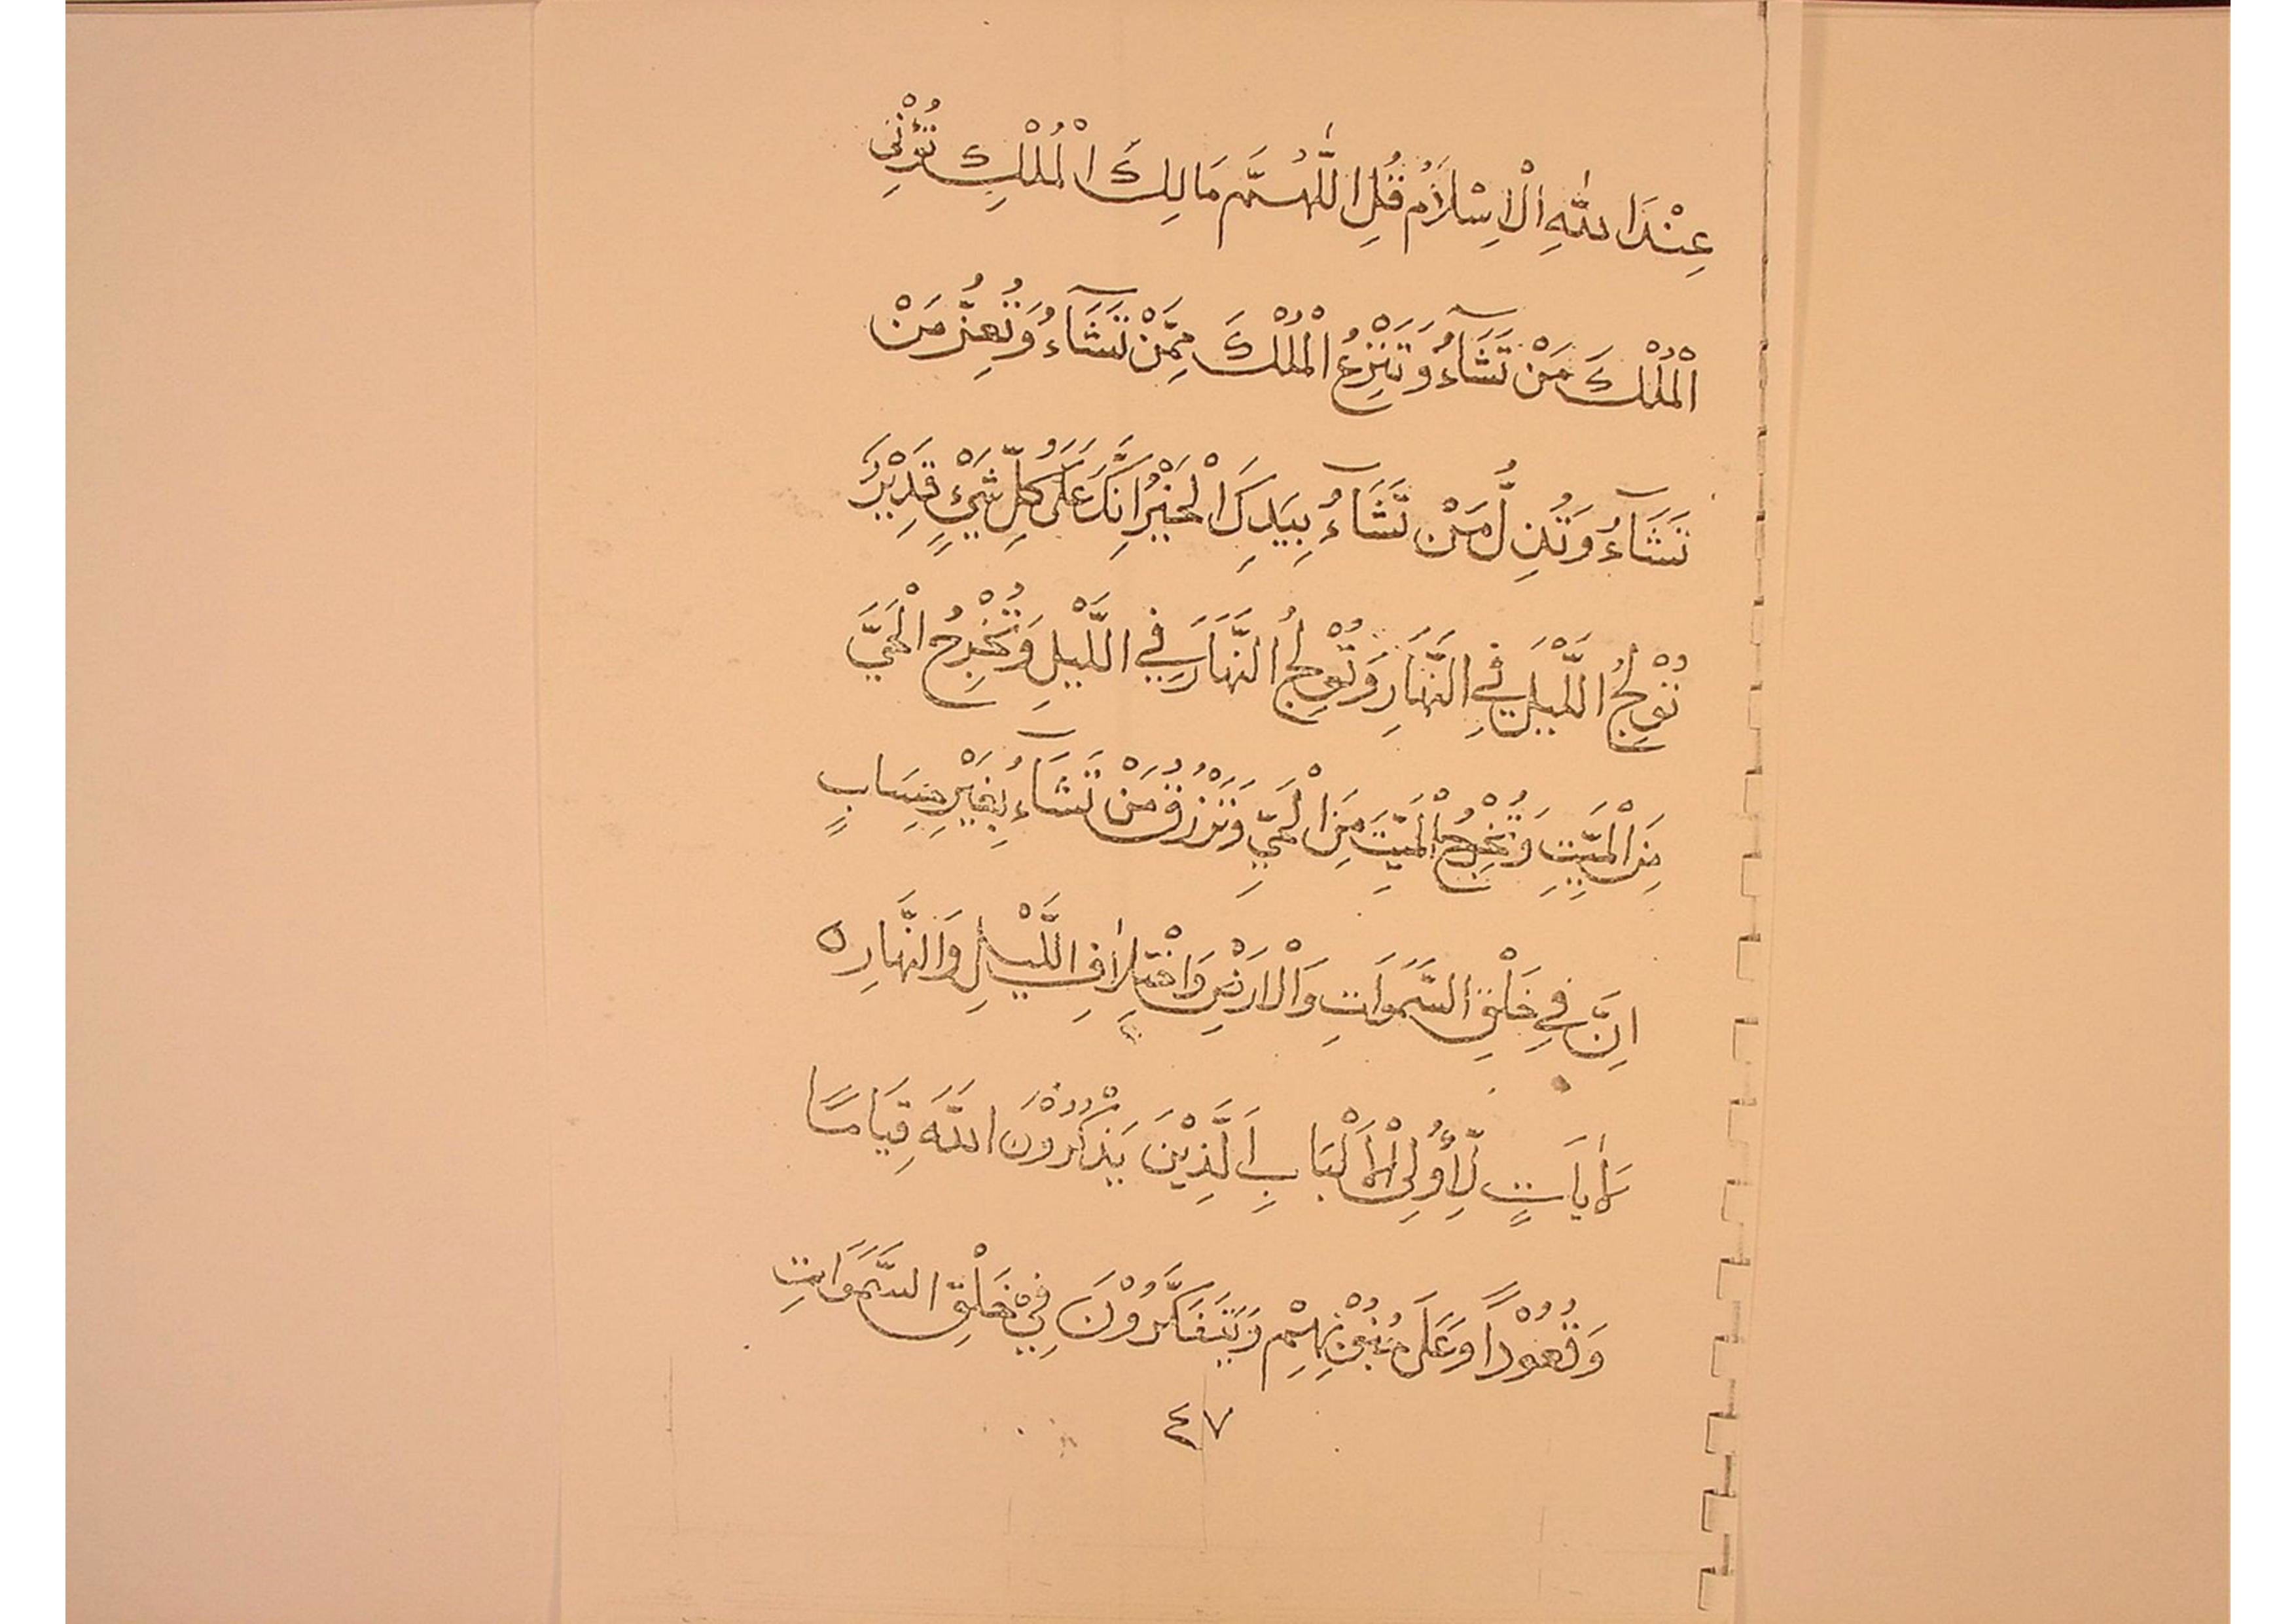 عِنْدَ اللّٰهِ الْاِسْلَامُ قُلِ اللّٰهُمَّ مَالِكَ الْمُلْكِ تُؤْتِي
الْمُلْكَ مَنْ تَشَآءُ وَتَنْزِعُ الْمُلْكَ مِمَّنْ تَشَآءُ وَتُعِزُّ مَنْ
تَشَآءُ وَتُذِلُّ مَنْ تَشَآءُ بِيَدِكَ الْخَيْرُ اِنَّكَ عَلَى كُلِّ شَيْءٍ قَدِيْرٌ
تُوْلِجُ اللَّيْلَ فِي النَّهَارِ وَتُوْلِجُ النَّهَارَ فِي اللَّيْلِ وَتُخْرِجُ الْحَيَّ
مِنَ الْمَيِّتِ وَتُخْرِجُ الْمَيِّتَ مِنَ الْحَيِّ وَتَرْزُقُ مَنْ تَشَآءُ بِغَيْرِ حِسَابٍ
اِنَّ فِي خَلْقِ السَّمَوَاتِ وَالْاَرْضِ وَاخْتِلَافِ اللَّيْلِ وَالنَّهَارِ ه
لَاٰيَاتٍ لِّأُولِى الْاَلْبَابِ اَلَّذِيْنَ يَذْكُرُوْنَ اللّٰهَ قِيَامًا
وَقُعُوْدًا وَعَلَى جُنُوْبِهِمْ وَيَتَفَكَّرُوْنَ فِيْ خَلْقِ السَّمَوَاتِ
٤٧